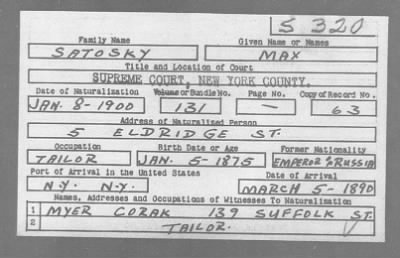 S 320
Family Name Given Name or Names
SATOSKY MAX
Title and Location of Court
SUPREME COURT, NEW YORK COUNTY.
Date of Naturalization Volume or Bundle No. Page No. Copy of Record No.
JAN. 8-1900 131 — 63
Address of Naturalized Person
5 ELDRIDGE ST.
Occupation Birth Date or Age Former Nationality
TAILOR JAN. 5-1875 EMPEROR OF RUSSIA
Port of Arrival in the United States Date of Arrival
N.Y. N.Y. MARCH 5-1890
Names, Addresses and Occupations of Witnesses To Naturalization
1 MYER CORAK 139 SUFFOLK ST.
2 TAILOR.